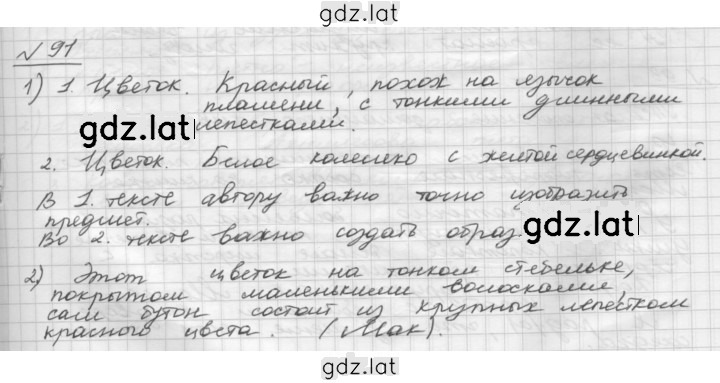 gdz.lat
№ 91
1) 1. Цветок. Красный, похож на язычок
пламени, с тонкими длинными
gdz.lat
лепестками.
2. Цветок. Белое колесико с желтой сердцевинкой.
В 1. тексте автору важно точно изобразить
предмет.
Во 2. тексте важно создать образ.
gdz.lat
2) Этот цветок на тонком стебельке,
покрытом маленькими волосками,
сам бутон состоит из крупных лепестком
красного цвета. (Мак).
gdz.lat